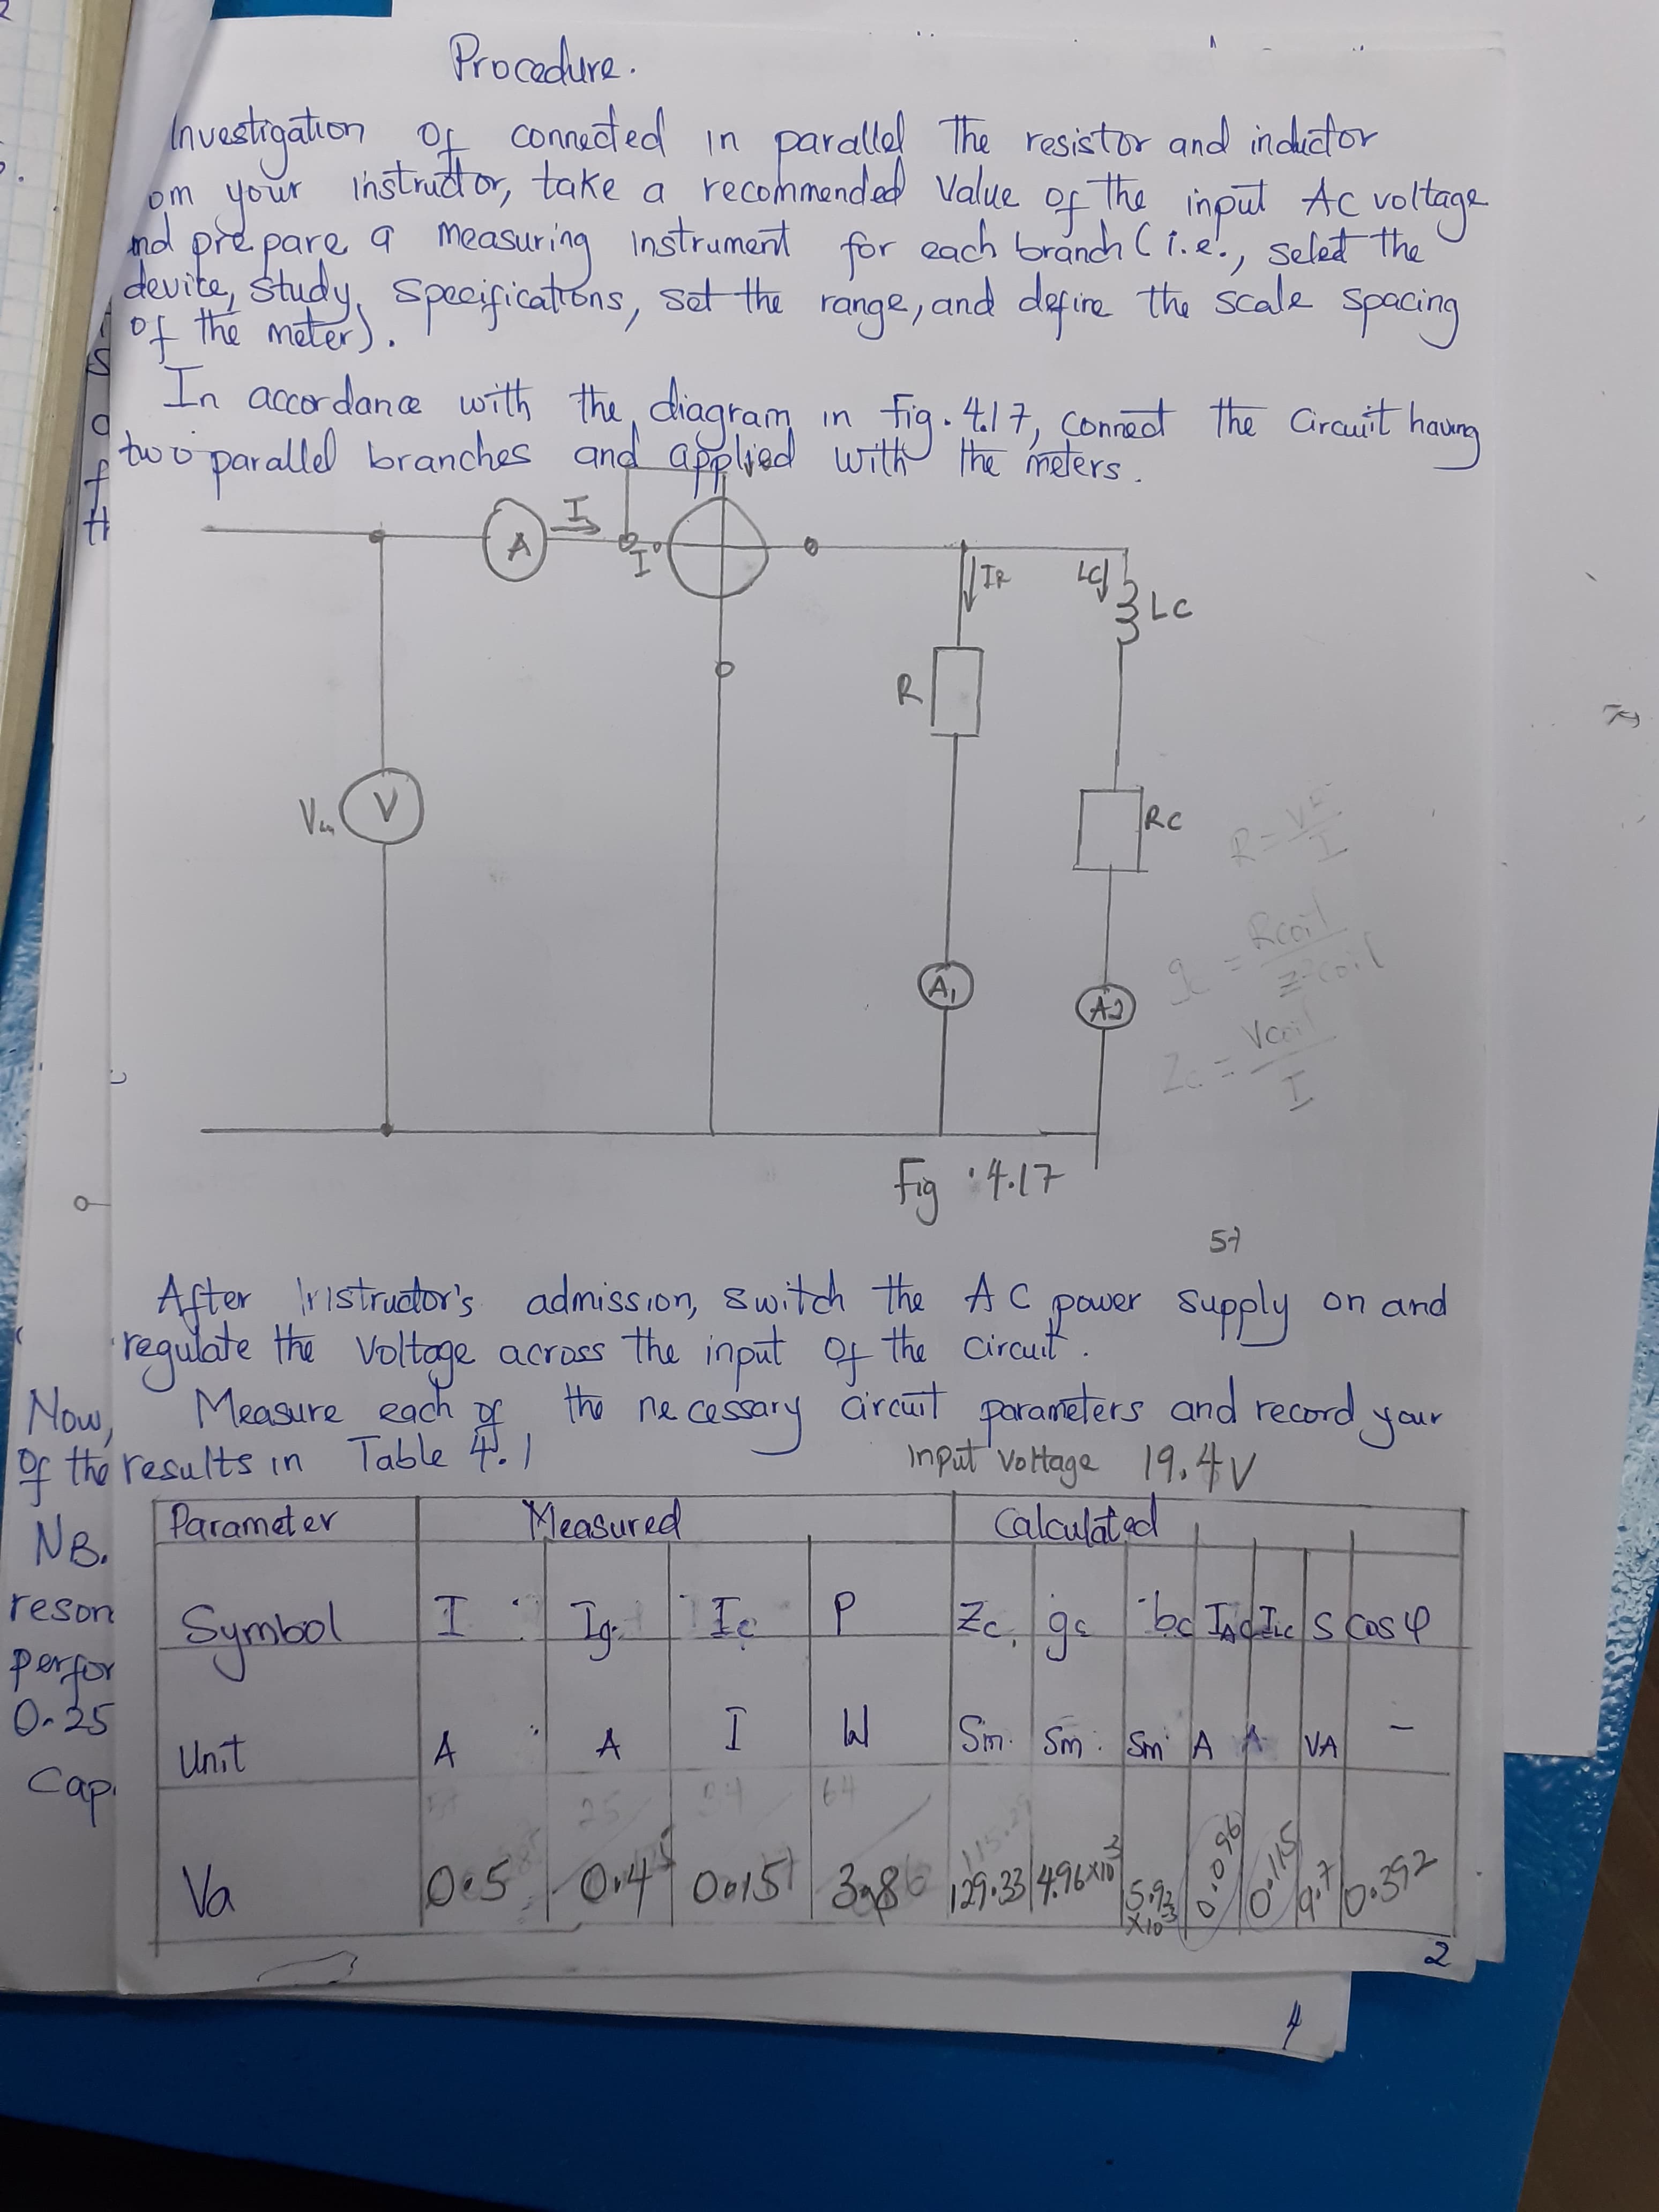 Procedure.
Investigation of connected in parallel the resistor and inductor
om your instructor, take a recommended value of the input AC voltage
nd prepare a measuring instrument for each branch (i.e., select the
device, study, specifications, set the range, and define the scale spacing
of the meter).
In accordance with the diagram in fig. 4.17, connect the circuit having
two parallel branches and applied with the meters.
A
I
I
IR
LC
R
V
RC
R =
gc = Rcoil
Z²coil
Zc = Vcoil
I
A1
A2
Fig : 4.17
57
After Instructor's admission, switch the AC power supply on and
regulate the voltage across the input of the circuit.
Now, Measure each of the necessary circuit parameters and record your
of the results in Table 4.1
Input voltage 19.4V
Parameter Measured Calculated
NB.
Symbol I Ig Ic P Zc gc bc S cos φ
reson
perfor
0.25
Unit A A I W Sm Sm Sm A A VA -
Cap
Va 0.5 0.4 0.15 3.8 129.33 4.96×10³ 5.92 ×10³ 0.096 0.115 9.7 0.392
2
4